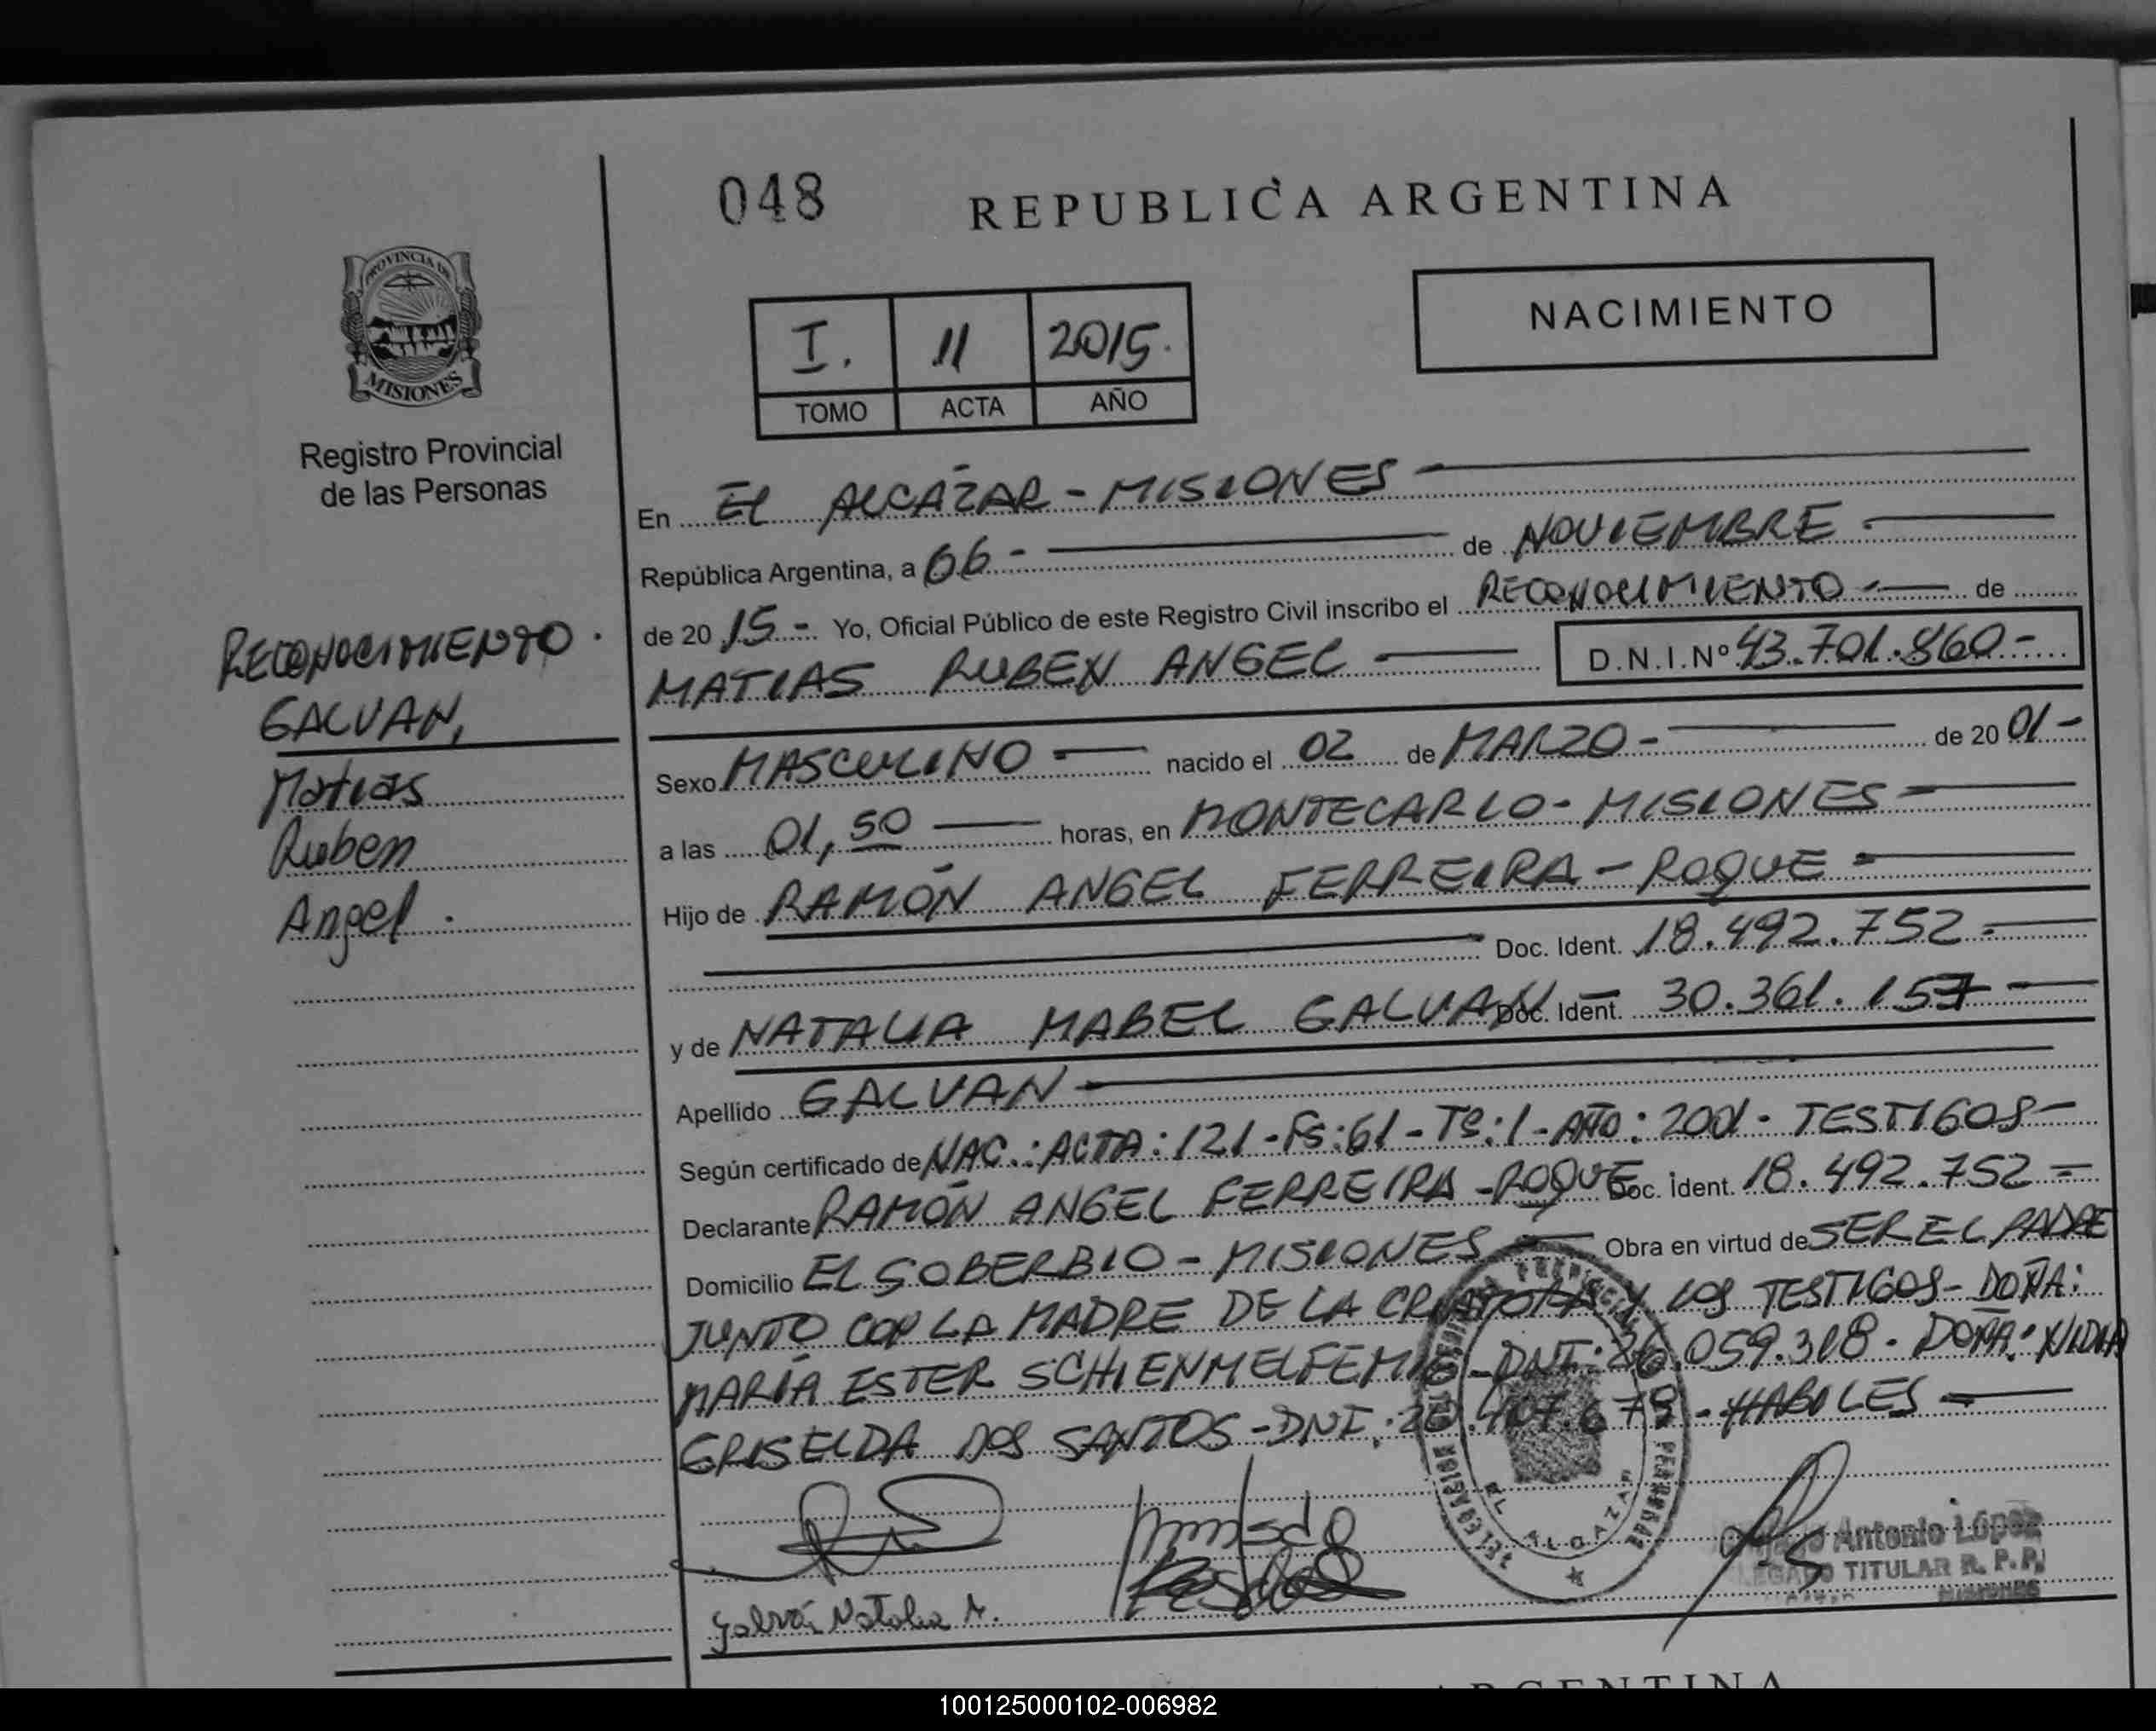 048
REPUBLICA ARGENTINA
PROVINCIA DE
MISIONES
Registro Provincial
de las Personas
I. 11 2015.
TOMO ACTA AÑO
NACIMIENTO
RECONOCIMIENTO.
GALVAN,
Matias
Ruben
Angel.
En El ALCÁZAR - MISIONES
República Argentina, a 06 - de NOVIEMBRE.
de 20 15 - Yo, Oficial Público de este Registro Civil inscribo el RECONOCIMIENTO - de
MATIAS RUBEN ANGEL D.N.I.Nº 43.701.860 -
Sexo MASCULINO - nacido el 02 de MARZO - de 20 01 -
a las 01,50 horas, en MONTECARLO - MISIONES -
Hijo de RAMÓN ANGEL FERREIRA - ROQUE -
Doc. Ident. 18.492.752 -
y de NATALIA MABEL GALVAN - Doc. Ident. 30.361.157 -
Apellido GALVAN -
Según certificado de NAC.: ACTA: 121 - Fs: 61 - Tº: 1 - AÑO: 2001 - TESTIGOS -
Declarante RAMÓN ANGEL FERREIRA - ROQUE Doc. Ident. 18.492.752 -
Domicilio EL SOBERBIO - MISIONES - Obra en virtud de SER EL PADRE
JUNTO CON LA MADRE DE LA CRIATURA Y LOS TESTIGOS - DOÑA:
MARÍA ESTER - DNI: 26.059.318 - DOÑA: NIDIA
GRISELDA DOS SANTOS - DNI: - HABILES -
Galván Natalia M.
EL ALCAZAR
Antonio López
TITULAR R. P. P.
MISIONES
ARGENTINA
100125000102-006982